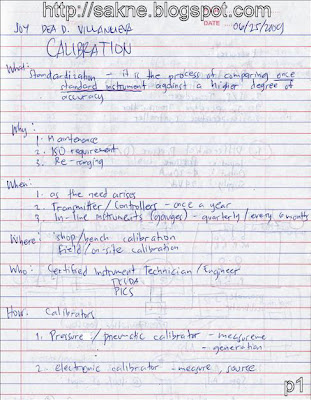 http://sakne.blogspot.com
DATE
JOY DEA D. VILLANUEVA 06/25/2009
CALIBRATION
What:
Standardization - it is the process of comparing once
standard instrument against a higher degree of
accuracy
Why:
1. Maintenance
2. ISO requirement
3. Re-ranging
When:
1. as the need arises
2. Transmitter / Controllers - once a year
3. In-line instruments (gauges) - quarterly / every 6 months
Where: shop/bench calibration
Field/on-site calibration
Who: Certified Instrument Technician / Engineer
PICS
How: Calibrators
1. Pressure / pneumatic calibrator - measure
- generation
2. electronic calibrator - measure, source
p1